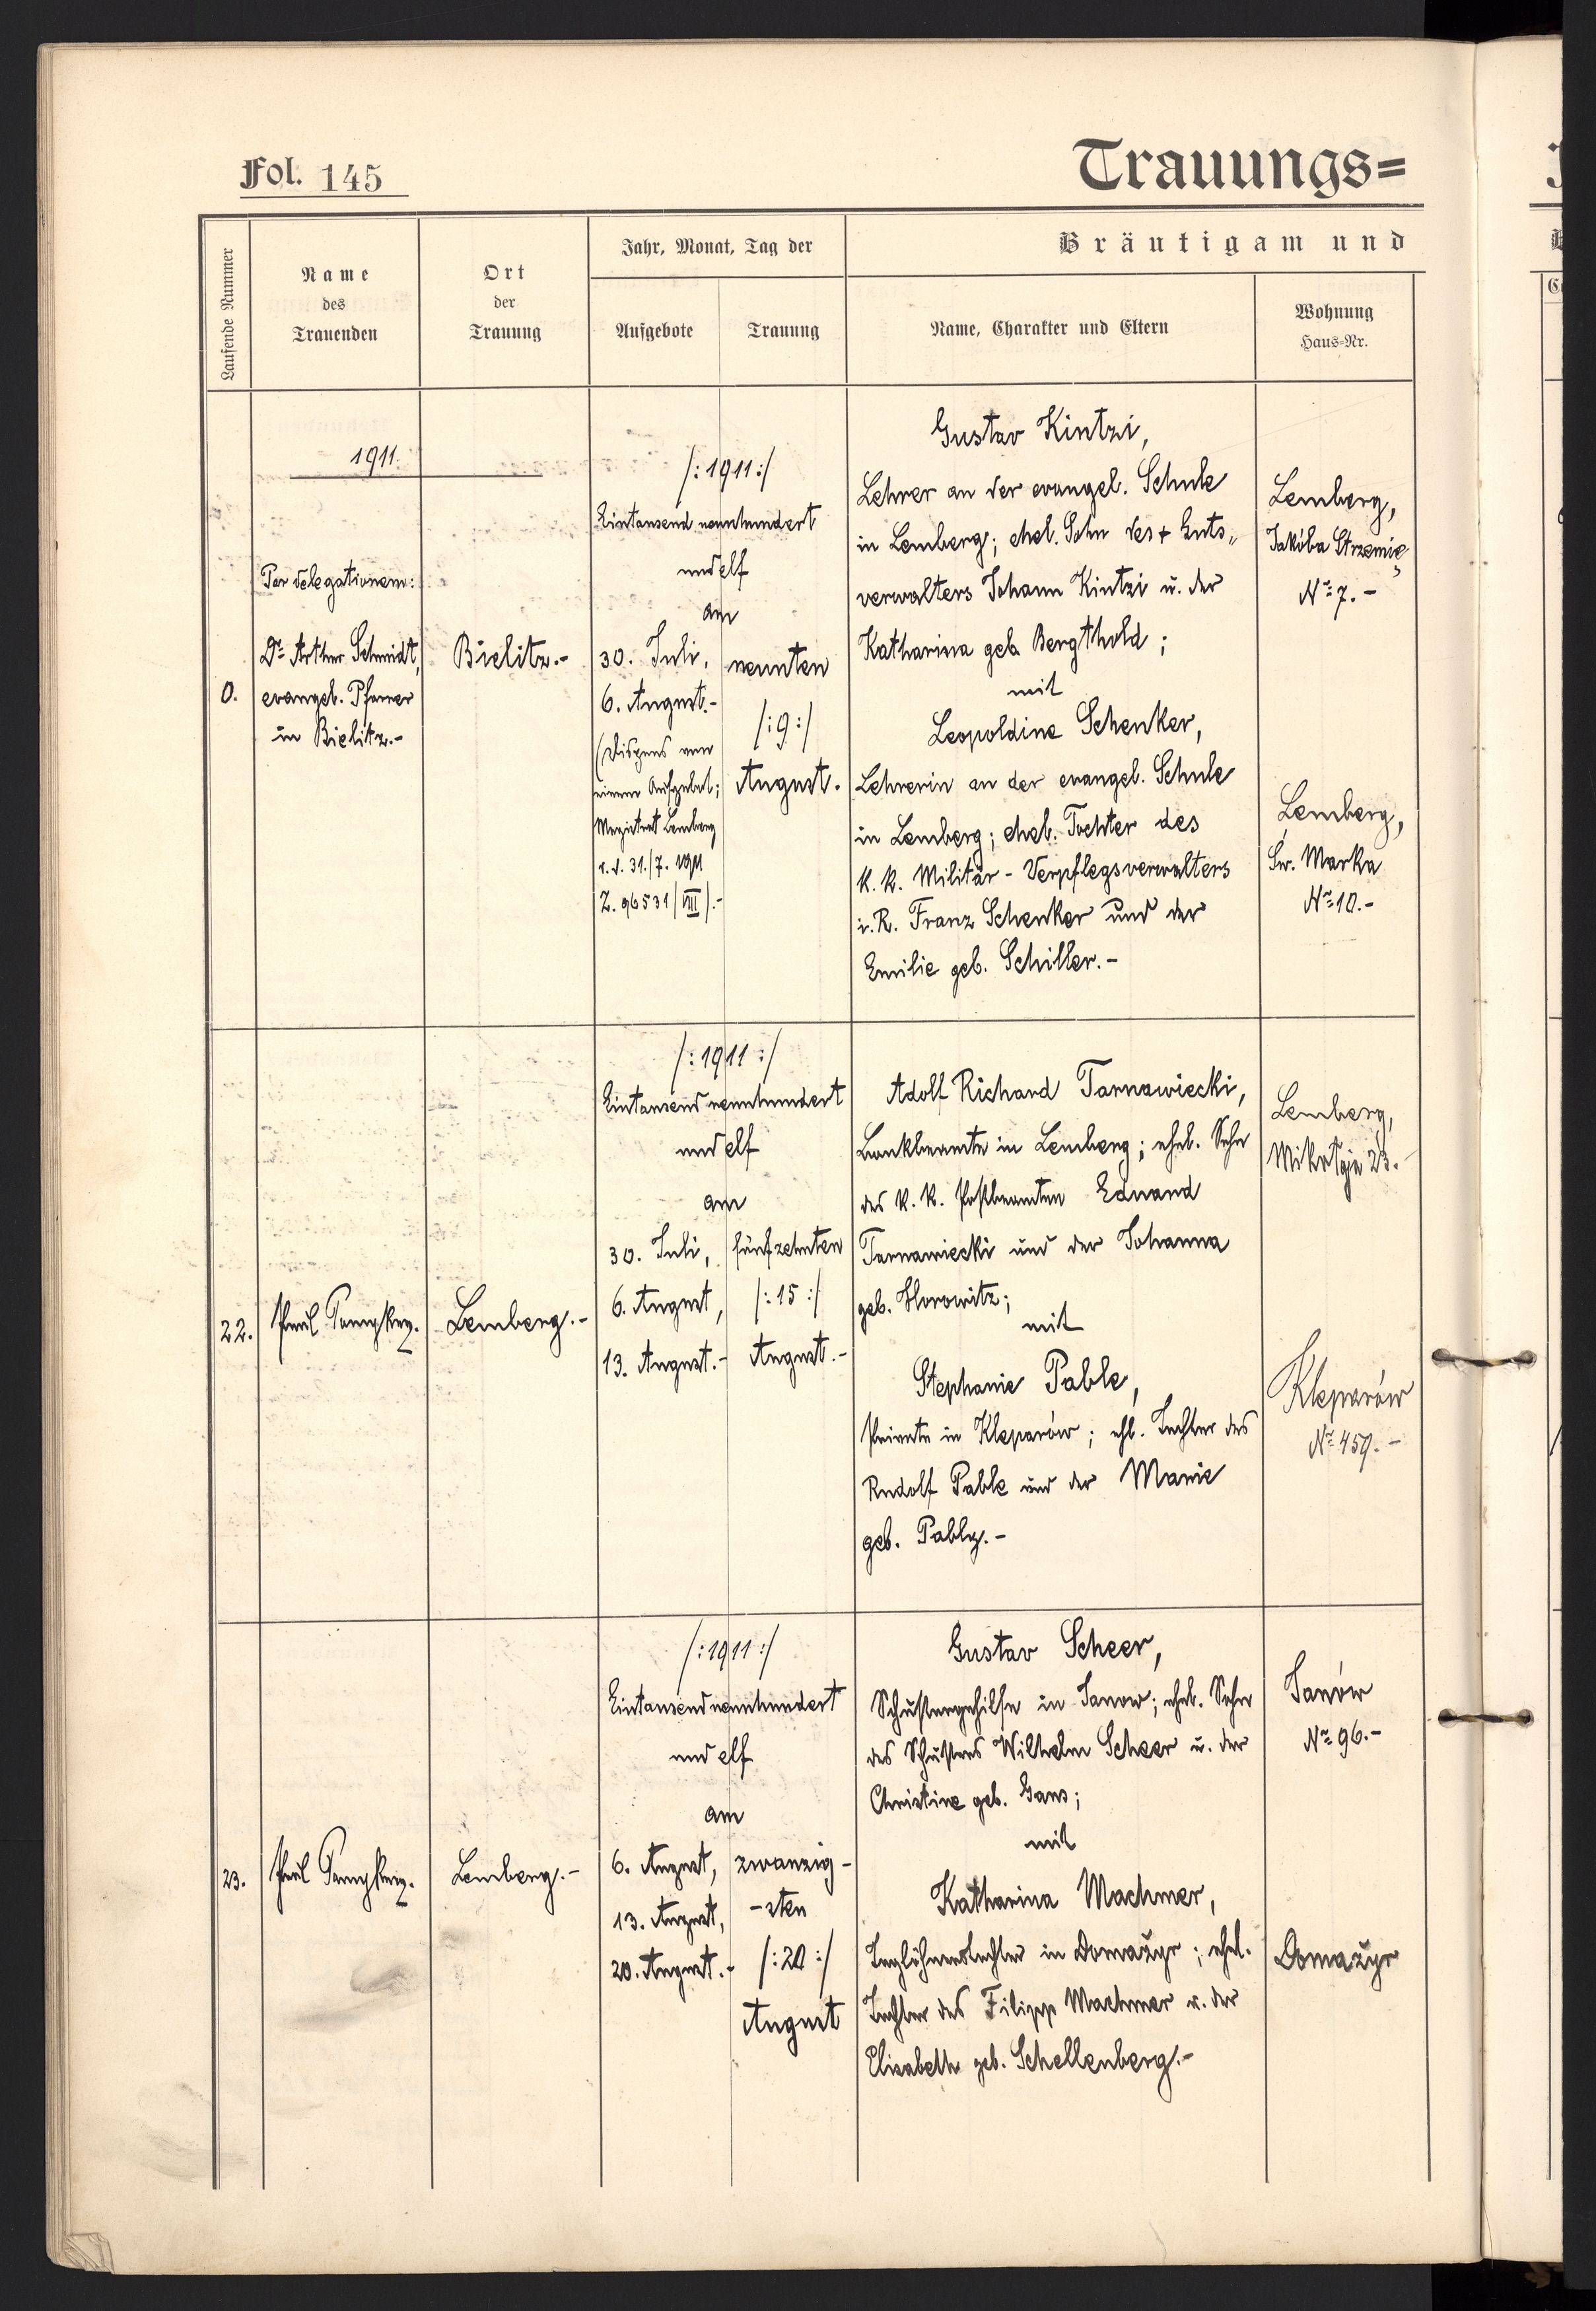 Fol. 145
Trauungs=
Laufende Nummer
Name
des
Trauenden
Ort
der
Trauung
Jahr, Monat, Tag der
Aufgebote
Trauung
Bräutigam und
Name, Charakter und Eltern
Wohnung
Haus=Nr.
1911.
0.
Per delegationem:
Dr. Arthur Schmidt,
evangel. Pfarrer
in Bielitz.-
Bielitz.-
/:1911:/
Eintausend neunhundert
und elf
am
30. Juli,
6. August.-
(Dispens vom
einem Aufgebot;
Magistrat Lemberg
v. d. 31./7. 1911
Z. 96531/VIII).-
neunten
/:9:/
August.
Gustav Kintzi,
Lehrer an der evangel. Schule
in Lemberg; ehel. Sohn des + Guts„
verwalters Johann Kintzi u. der
Katharina geb. Bergthold;
mit
Leopoldine Schenker,
Lehrerin an der evangel. Schule
in Lemberg; ehel. Tochter des
k. k. Militär-Verpflegsverwalters
i. R. Franz Schenker und der
Emilie geb. Schiller.-
Lemberg,
Jakóba Strzemię
Nr. 7.-
Lemberg,
Św. Marka
Nr. 10.-
22.
Lemberg.-
/:1911:/
Eintausend neunhundert
und elf
am
30. Juli,
6. August,
13. August.-
fünfzehnten
/:15:/
August.-
Adolf Richard Tarnawiecki,
Bankbeamte in Lemberg; ehel. Sohn
des k. k. Postbeamten Eduard
Tarnawiecki und der Johanna
geb. Horowitz;
mit
Stephanie Pable,
Private in Kleparów; ehl. Tochter des
Rudolf Pable und der Marie
geb. Pably.-
Lemberg,
Mikołaja 23.-
Kleparów
Nr. 459.-
23.
Lemberg.-
/:1911:/
Eintausend neunhundert
und elf
am
6. August,
13. August,
20. August.-
zwanzig-
-sten
/:20:/
August
Gustav Scheer,
Schustergehilfe in Janow; ehel. Sohn
des Schusters Wilhelm Scheer u. der
Christine geb. Gans;
mit
Katharina Machmer,
Taglöhnerstochter in Domażyr; ehel.
Tochter des Filipp Machmer u. der
Elisabeth geb. Schellenberg.-
Janów
Nr. 96.-
Domażyr